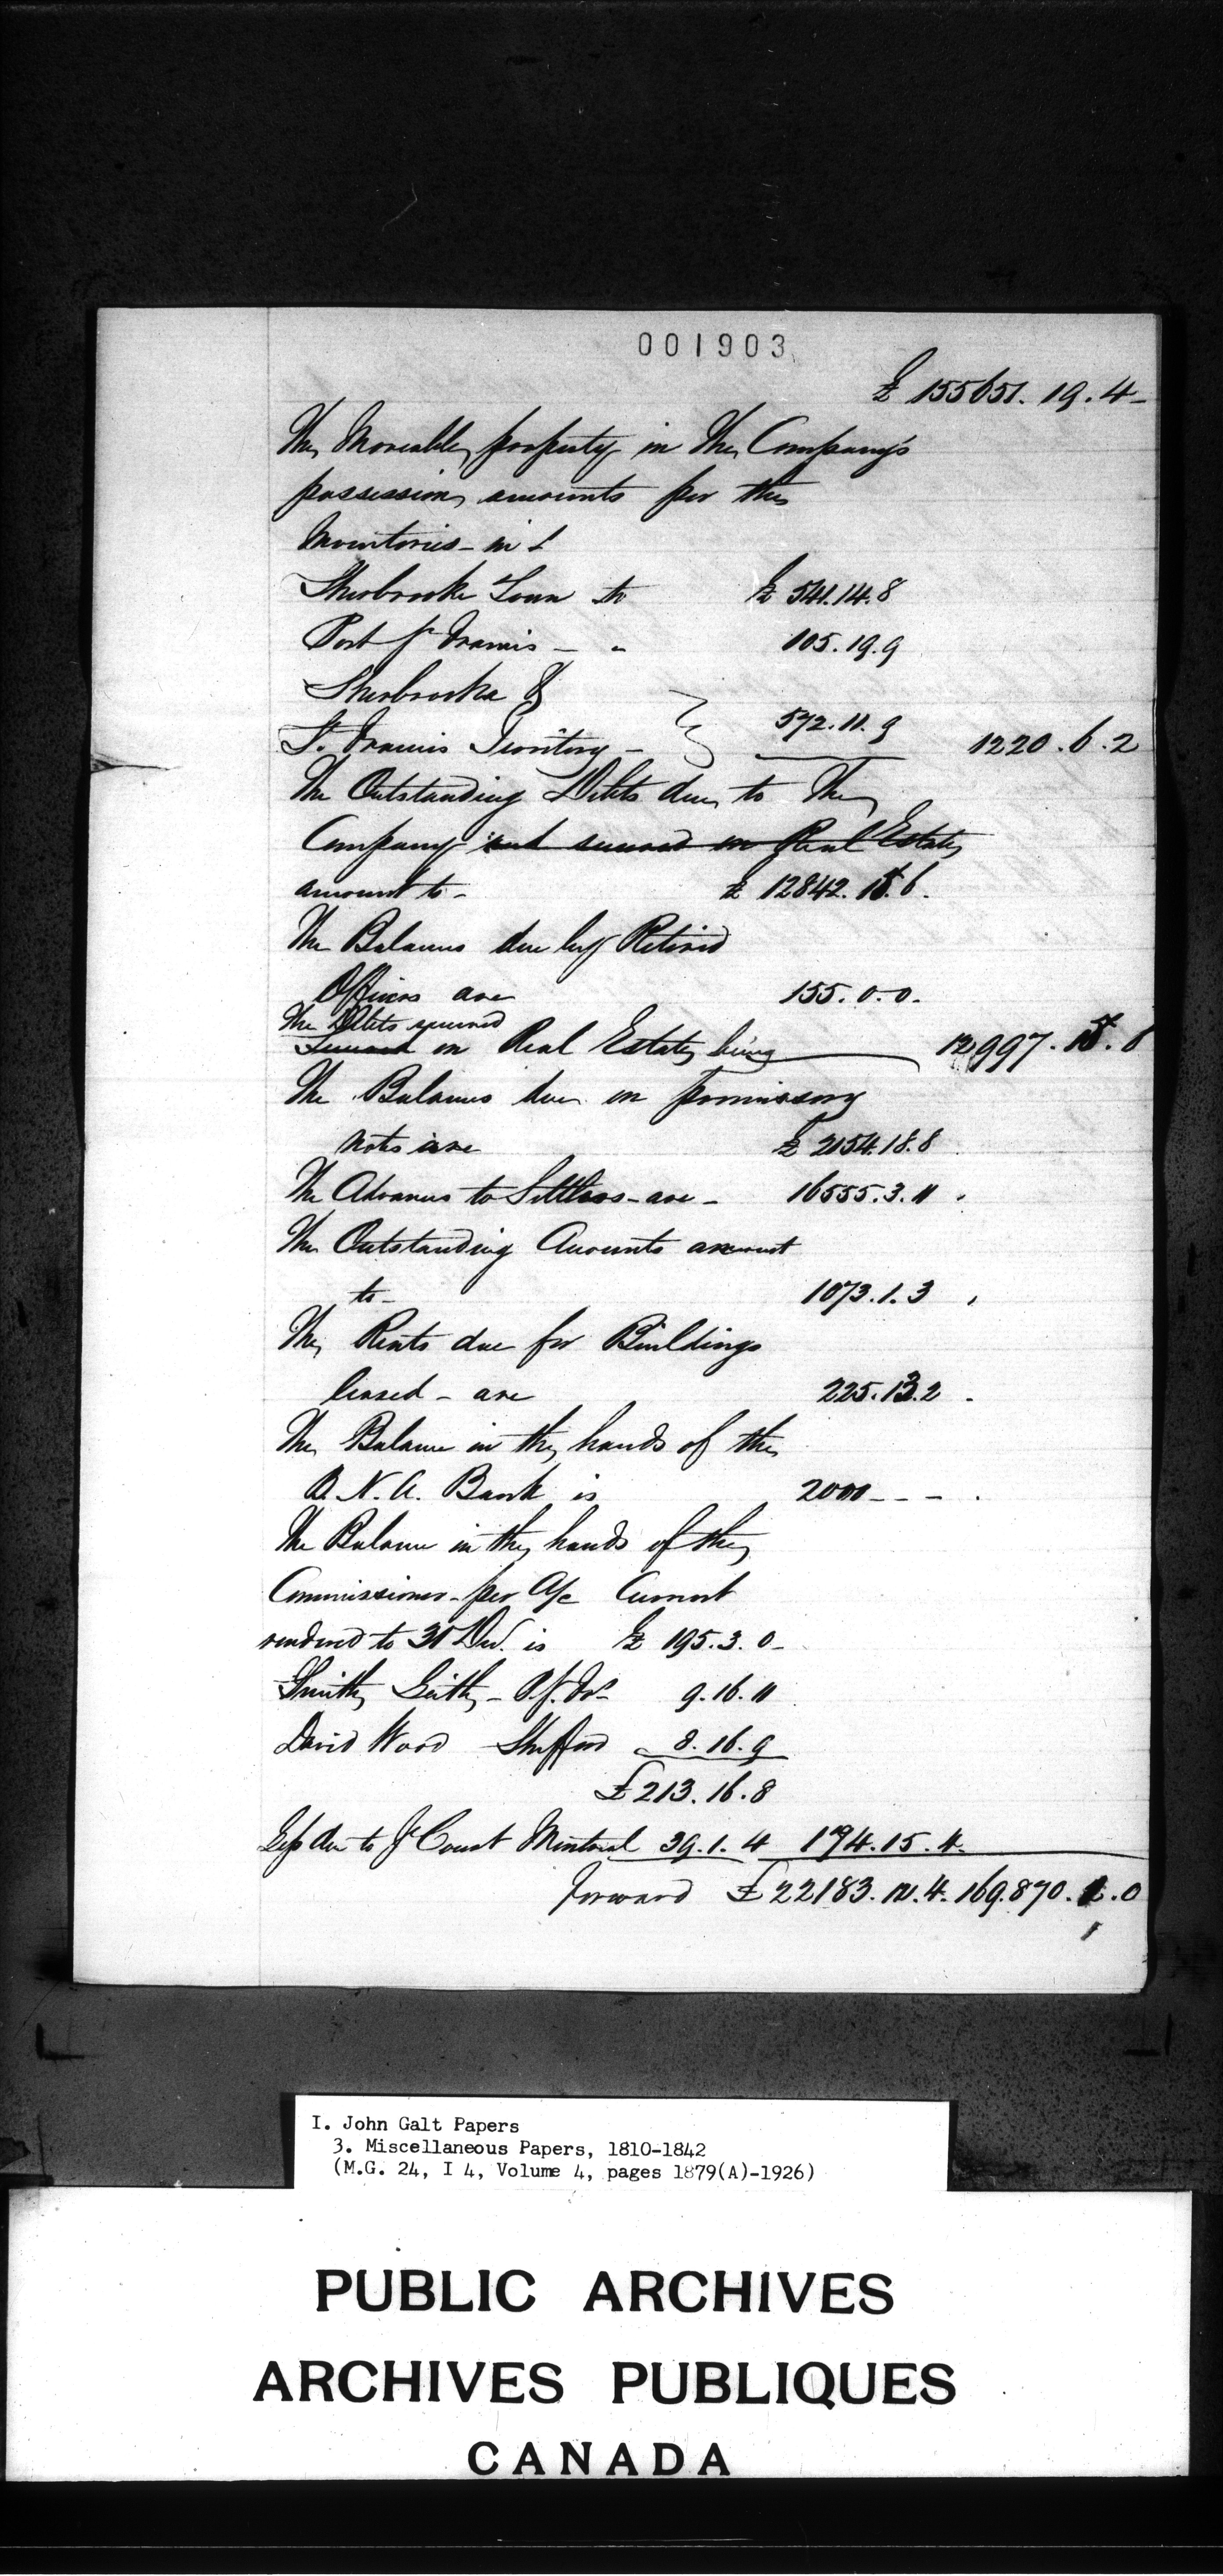 001903
£ 155651. 19. 4-
The Moveable property in the Company's
possession amounts per the
Inventories - in
Sherbrooke Town to £ 541.14.8
Port St Francis - " 105.19.9
Sherbrooke &
St. Francis Territory - } 572.11.9 1220.6.2
The Outstanding Debts due to the
Company and secured on Real Estate
amount to - £ 12842.15.6.
The Balances due by Retired
Officers are 155.0.0.
The Debts secured
Secured on Real Estate being 12997.15.6
The Balances due on promissory
notes are £ 2154.18.8
The Advances to Settlers - are - 16555.3.11
The Outstanding Accounts amount
to - 1073.1.3
The Rents due for Buildings
leased - are 225.13.2
The Balance in the hands of the
B. N. A. Bank is 2000 - - -
The Balance in the hands of the
Commissioner - per A/c Current
rendered to 31 Dec. is £ 195.3.0-
Smith Leith - P. St. Frs 9.16.11
David Wood Shefford 8.16.9
£ 213.16.8
Less due to J Court Montreal 39.1.4 174.15.4
forward £ 22183.12.4. 169.870.1.0
1
I. John Galt Papers
3. Miscellaneous Papers, 1810-1842
(M.G. 24, I 4, Volume 4, pages 1879(A)-1926)
PUBLIC ARCHIVES
ARCHIVES PUBLIQUES
CANADA